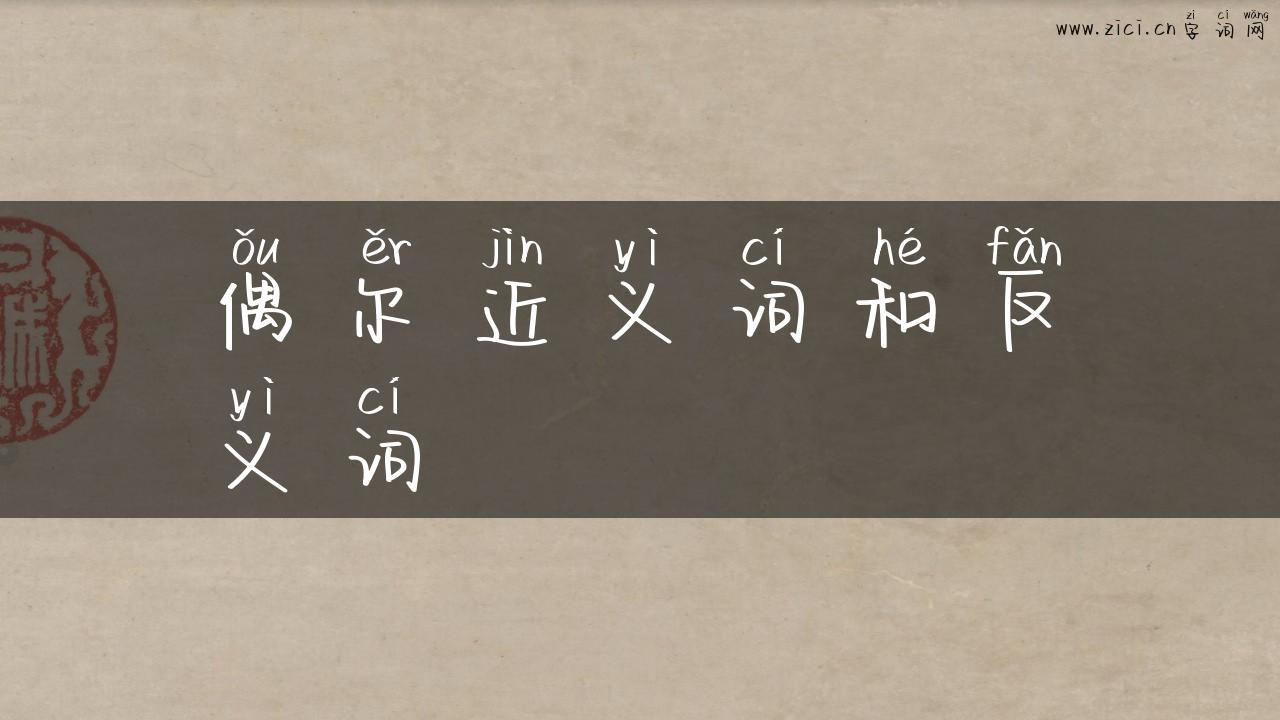 zì cí wǎng
www.zici.cn 字 词 网
ǒu ěr jìn yì cí hé fǎn
偶 尔 近 义 词 和 反
yì cí
义 词